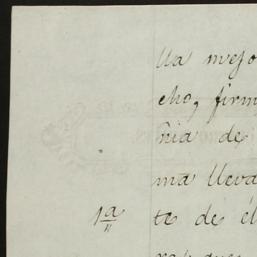 Ua mejo
cho, firm
ñia de
ma lleva
1a te de él